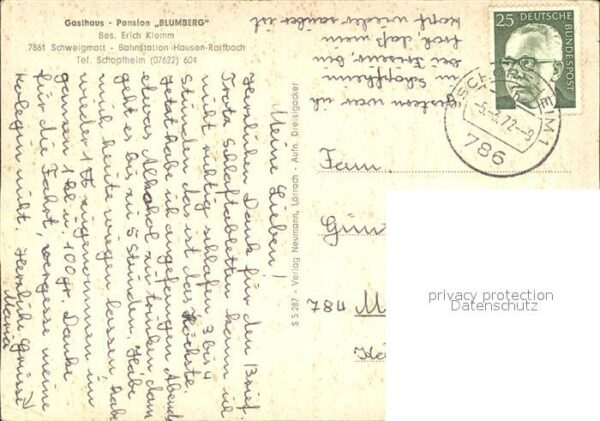 Gasthaus - Pension „BLUMBERG"
Bes. Erich Klemm
7861 Schweigmatt - Bahnstation Hausen-Raitbach
Tel. Schopfheim (07622) 604
Meine Lieben!
Herzlichen Dank für den Brief.
Trotz Schlaftabletten kann ich
nicht richtig schlafen 3 bis 4
Stunden das ist das Höchste.
Jetzt habe ich angefangen Abends
etwas Alkohol zu trinken dann
geht es bis zu 5 Stunden. Habe
mich heute wiegen lassen habe
wieder 1 ℔ zugenommen im
ganzen 1 kl u. 100 gr. Danke
für die Fahrt, vergesse meine
Kolegin nicht. Herzliche Grüsse
Maria
Gestern war ich
in Schopfheim
bei Friseur, bin
froh, daß mein
Kopf wieder sauber ist
S 5 287 - Verlag Neumann, Lörrach - Aufn. Dreisigacker
25 DEUTSCHE
BUNDESPOST
HEIM 1
-5.-8.72--9
786
Fam.
Gün
784 M
privacy protection
Datenschutz